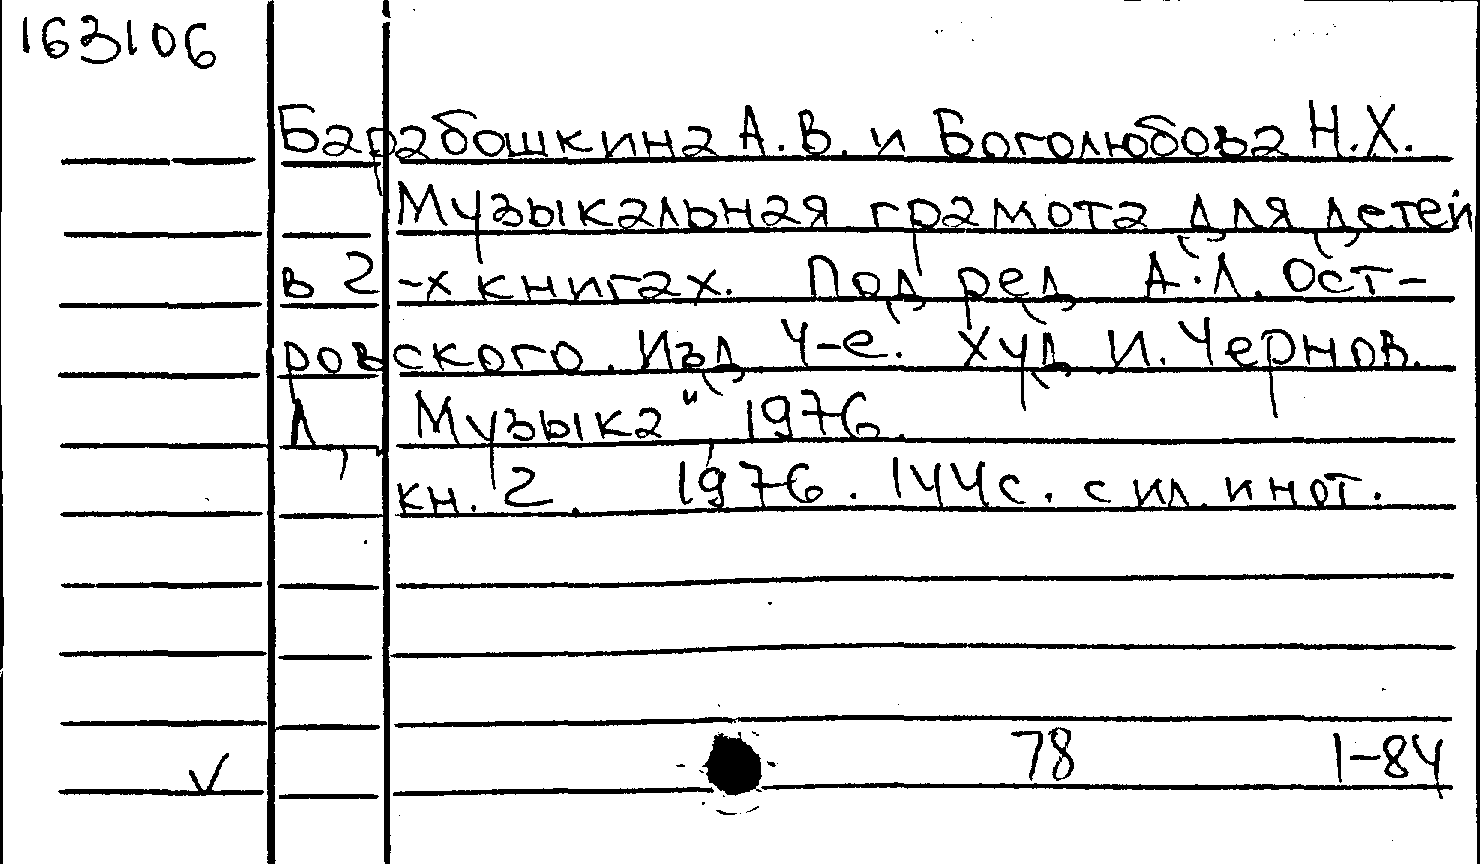 163106
Барабошкина А.В. и Боголюбова Н.Х.
Музыкальная грамота для детей
в 2-х книгах. Под ред А.Л. Ост-
ровского. Изд 4-е. Худ И. Чернов.
Л, Музыка" 1976.
кн. 2. 1976. 144с. с ил. и нот.
78 1-84